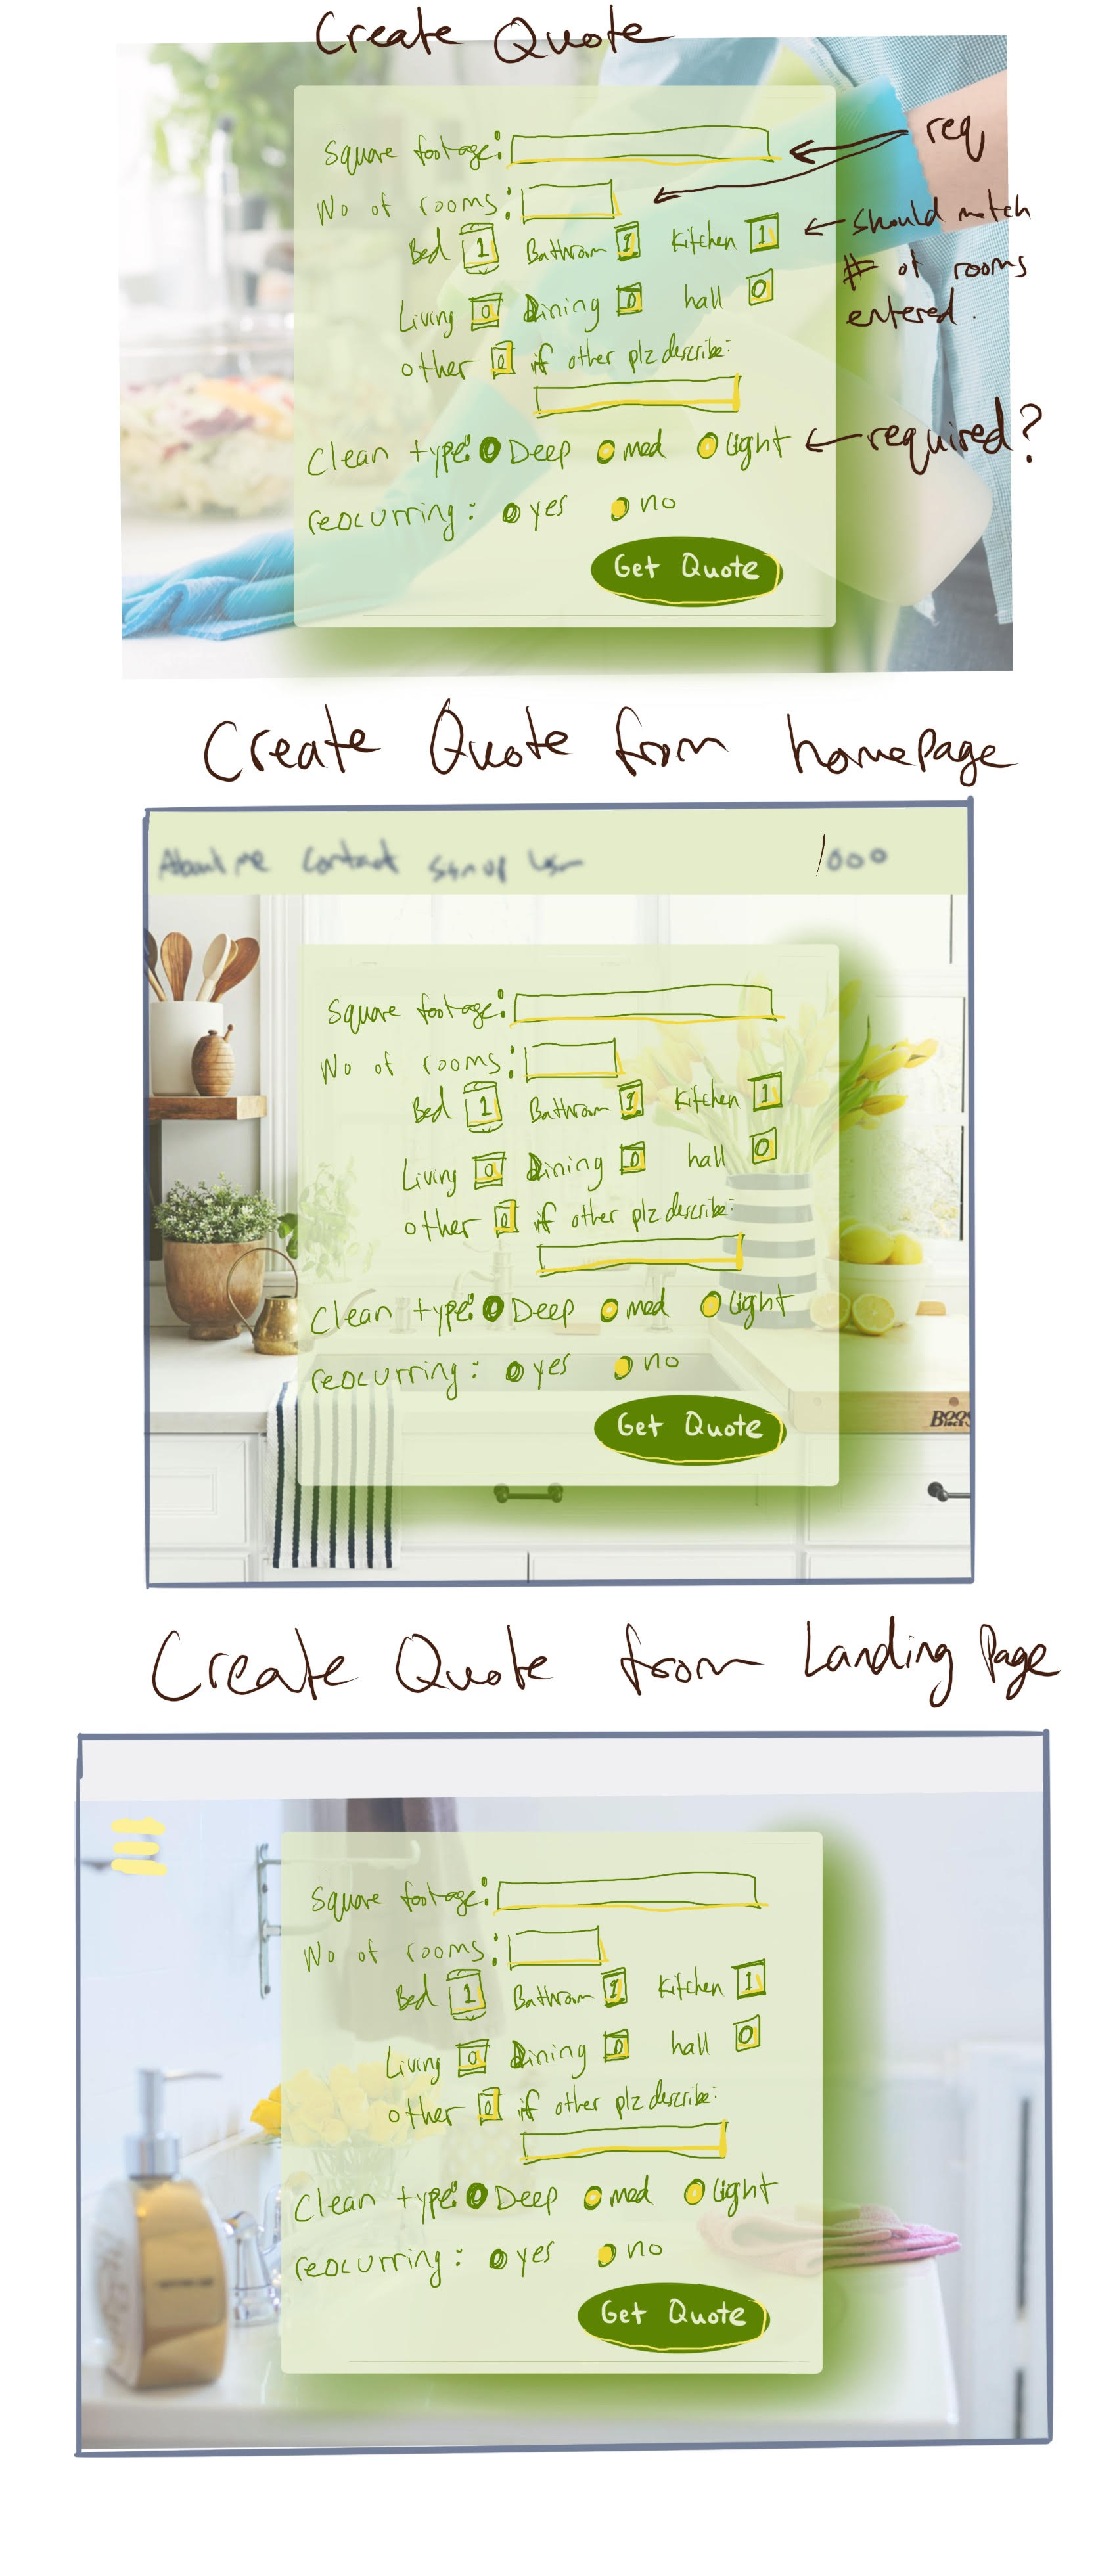 Create Quote
Square footage:
No of rooms:
Bed 1 Bathroom 1 Kitchen 1
Living 0 Dining 0 hall 0
other 0 if other plz describe:
Clean type: Deep med Light
reocurring: yes no
Get Quote
req
should match
# of rooms
entered.
required?
Create Quote from homepage
About me Contact Sign up
Square footage:
No of rooms:
Bed 1 Bathroom 1 Kitchen 1
Living 0 Dining 0 hall 0
other 0 if other plz describe:
Clean type: Deep med Light
reocurring: yes no
Get Quote
Create Quote from Landing Page
Square footage:
No of rooms:
Bed 1 Bathroom 1 Kitchen 1
Living 0 Dining 0 hall 0
other 0 if other plz describe:
Clean type: Deep med Light
reocurring: yes no
Get Quote